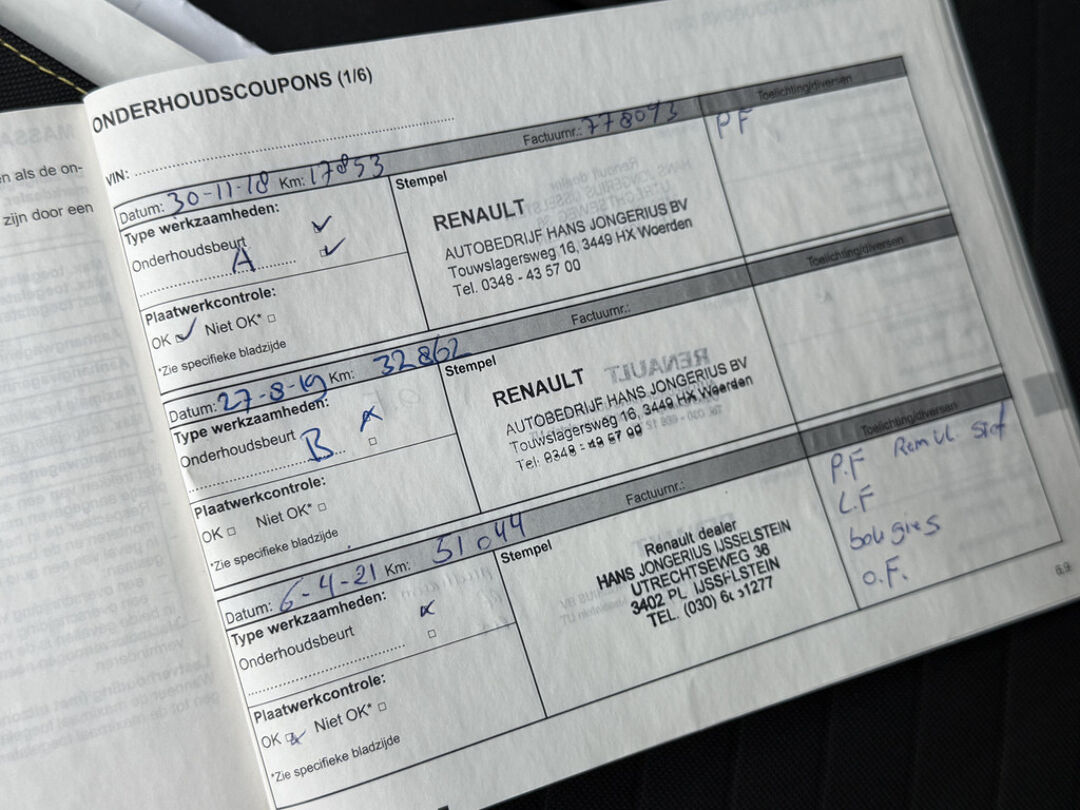 en als de on-
zijn door een
ONDERHOUDSCOUPONS (1/6)
VIN:
Datum: 30-11-18 Km: 17853 Factuurnr.: 778093 Toelichting/diversen
Type werkzaamheden:
Onderhoudsbeurt
A
Plaatwerkcontrole:
OK Niet OK*
*Zie specifieke bladzijde
Stempel
RENAULT
AUTOBEDRIJF HANS JONGERIUS BV
Touwslagersweg 16, 3449 HX Woerden
Tel. 0348 - 43 57 00
PF
Datum: 27-8-19 Km: 32862 Factuurnr.: Toelichting/diversen
Type werkzaamheden:
Onderhoudsbeurt
B
Plaatwerkcontrole:
OK Niet OK*
*Zie specifieke bladzijde
Stempel
RENAULT
AUTOBEDRIJF HANS JONGERIUS BV
Touwslagersweg 16, 3449 HX Woerden
Tel: 0348 - 43 57 00
Datum: 6-4-21 Km: 51044 Factuurnr.: Toelichting/diversen
Type werkzaamheden:
Onderhoudsbeurt
Plaatwerkcontrole:
OK Niet OK*
*Zie specifieke bladzijde
Stempel
Renault dealer
HANS JONGERIUS IJSSELSTEIN
UTRECHTSEWEG 36
3402 PL IJSSELSTEIN
TEL. (030)
P.F Rem Vl.
L.F
bougies
O.F.
6.9